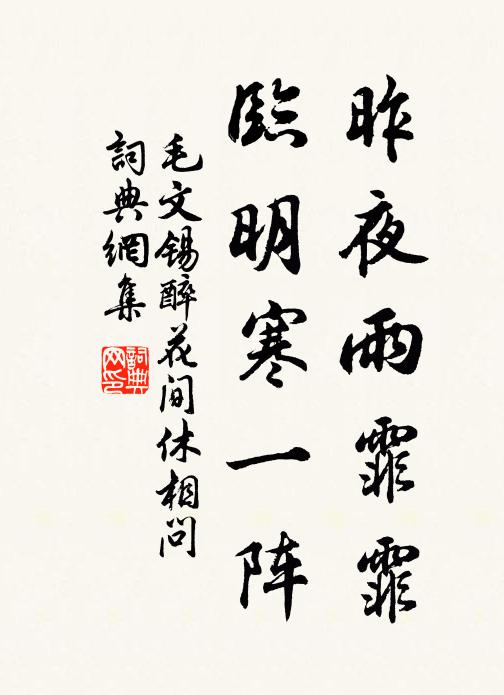 昨夜雨霏霏
臨明寒一阵
毛文锡醉花间休相问
詞典網集
詞典网印